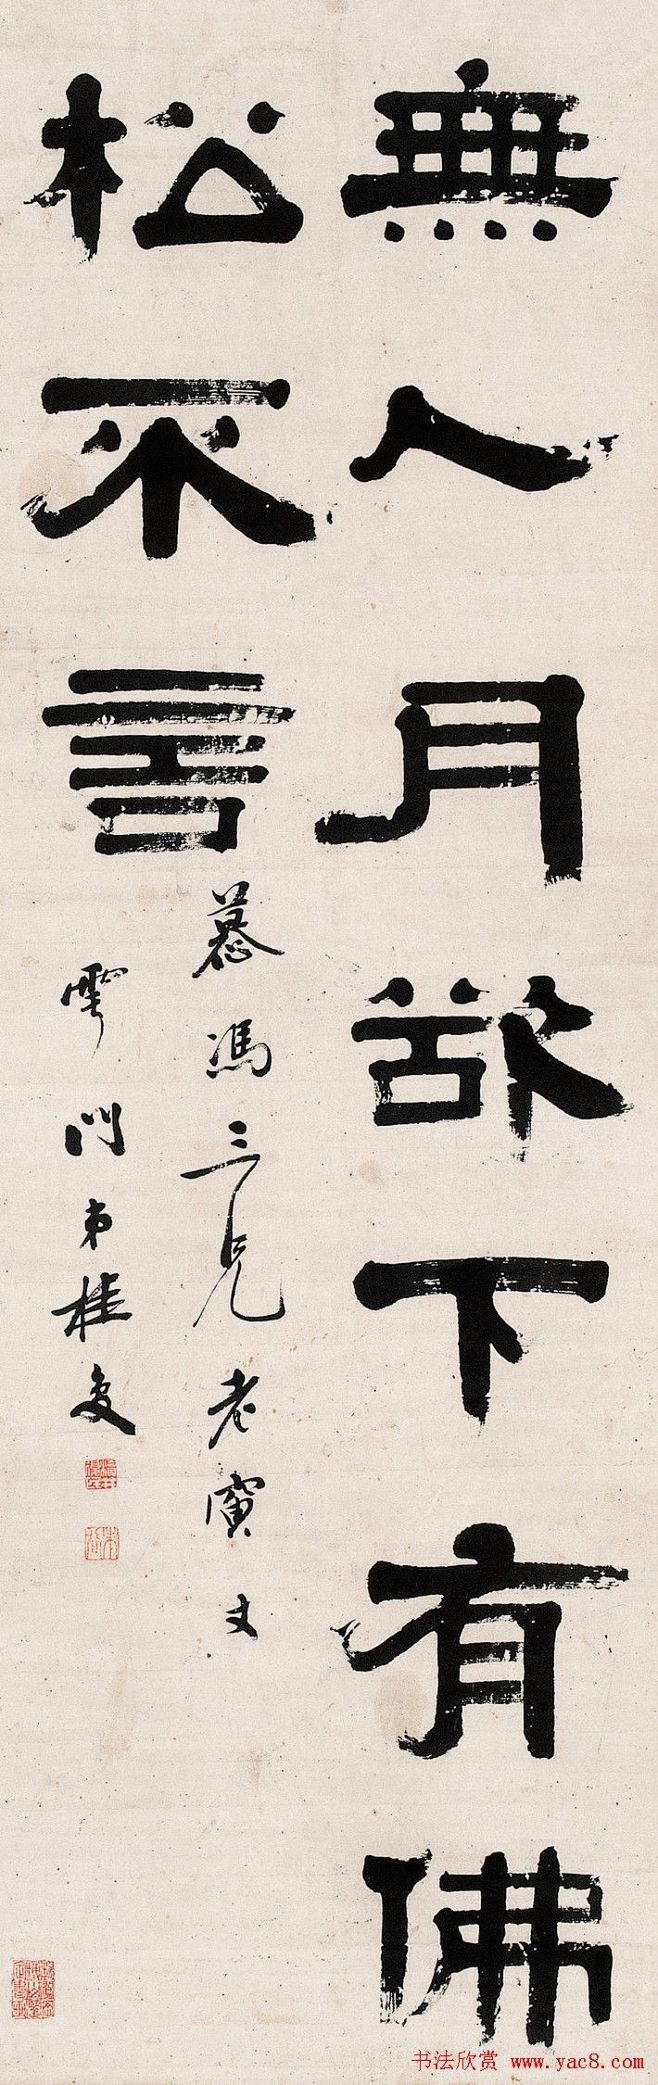 無人月欲下有佛
松不言
慕馮三兄老寅丈
雲門弟桂馥
书法欣赏 www.yac8.com